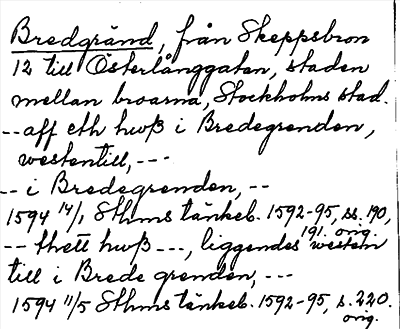 Bredgränd, från Skeppsbron
12 till Österlånggatan, staden
mellan broarna, Stockholms stad.
-- aff eth hwß i Bredegrenden,
westentill, ---
-- i Bredegrenden, --
1594 14/1 Sthms tänkeb. 1592-95, ss. 190,
191. orig.
-- thett hwß ---, liggendes westen
till i Brede grenden, ---
1594 11/5 Sthms tänkeb. 1592-95, s. 220.
orig.